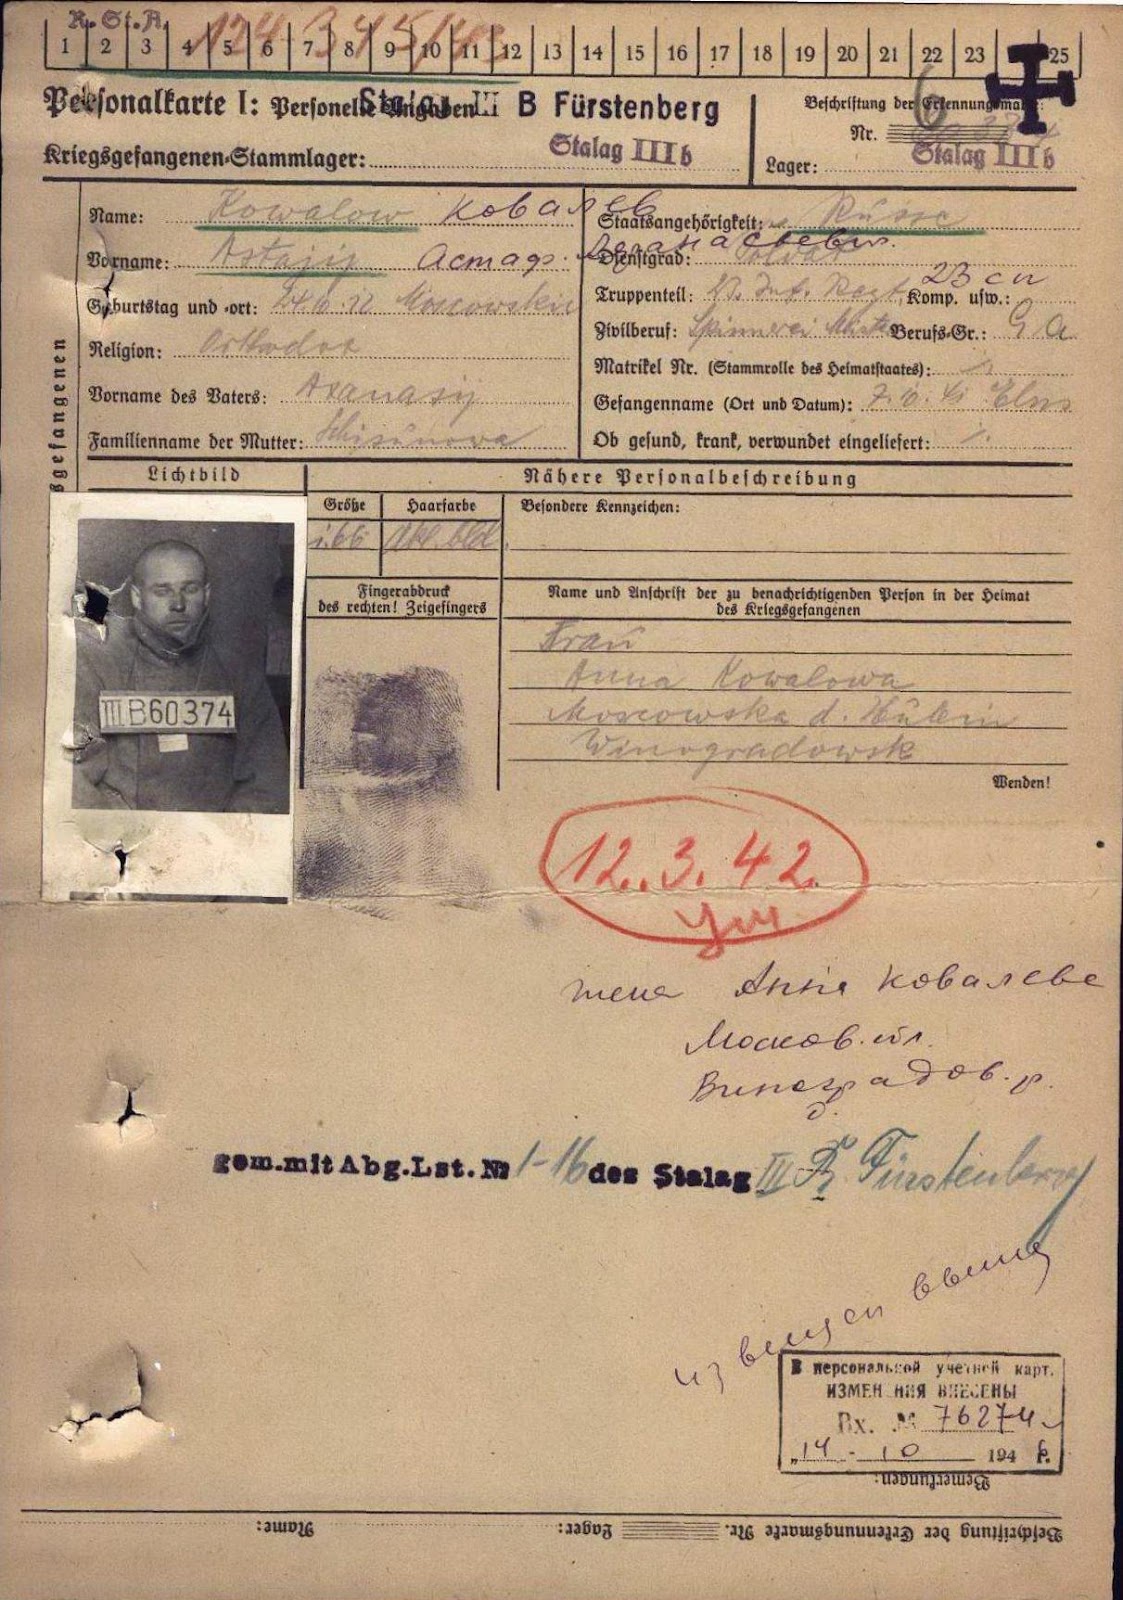 R. St. A.
1 2 3 4 5 6 7 8 9 10 11 12 13 14 15 16 17 18 19 20 21 22 23 25
Personalkarte I: Personelle Angaben
Stalag III B Fürstenberg
Beschriftung der Erkennungsmarke:
6
Nr.
Kriegsgefangenen-Stammlager: Stalag III b
Lager: Stalag III b
Name: Kowalow Ковалев
Staatsangehörigkeit: Russe
Vorname: Astafij Астафь. Афанасьевич
Dienstgrad: Soldat
Geburtstag und -ort: 24.6.12 Moscowskie
Truppenteil: Inf. Regt. Komp. usw.: 23 сп
Zivilberuf: Spinnerei Berufs-Gr.: G a
Religion: Orthodox
Matrikel Nr. (Stammrolle des Heimatstaates):
Vorname des Vaters: Afanasij
Gefangenname (Ort und Datum): 7.10.41 Elnis
Familienname der Mutter:
Ob gesund, krank, verwundet eingeliefert: /.
sgefangenen
Lichtbild
Nähere Personalbeschreibung
Größe Haarfarbe Besondere Kennzeichen:
1.66 dkl. bld.
III B 60374
Fingerabdruck
des rechten! Zeigefingers
Name und Anschrift der zu benachrichtigenden Person in der Heimat
des Kriegsgefangenen
Frau
Anna Kowalowa
Moscowska d.
Winogradowsk
Wenden!
12.3.42.
Ум
жена Анна Ковалева
Москов. обл.
Виноградов. р.
д.
gem. mit Abg. Lst. № 1-16 des Stalag III B Fürstenberg
извещен
В персональной учетной карт.
ИЗМЕНЕНИЯ ВНЕСЕНЫ
Вх. № 76274
„14 - 10 194 6 г.
Bemerkungen:
Beschriftung der Erkennungsmarke Nr. Lager: Name: